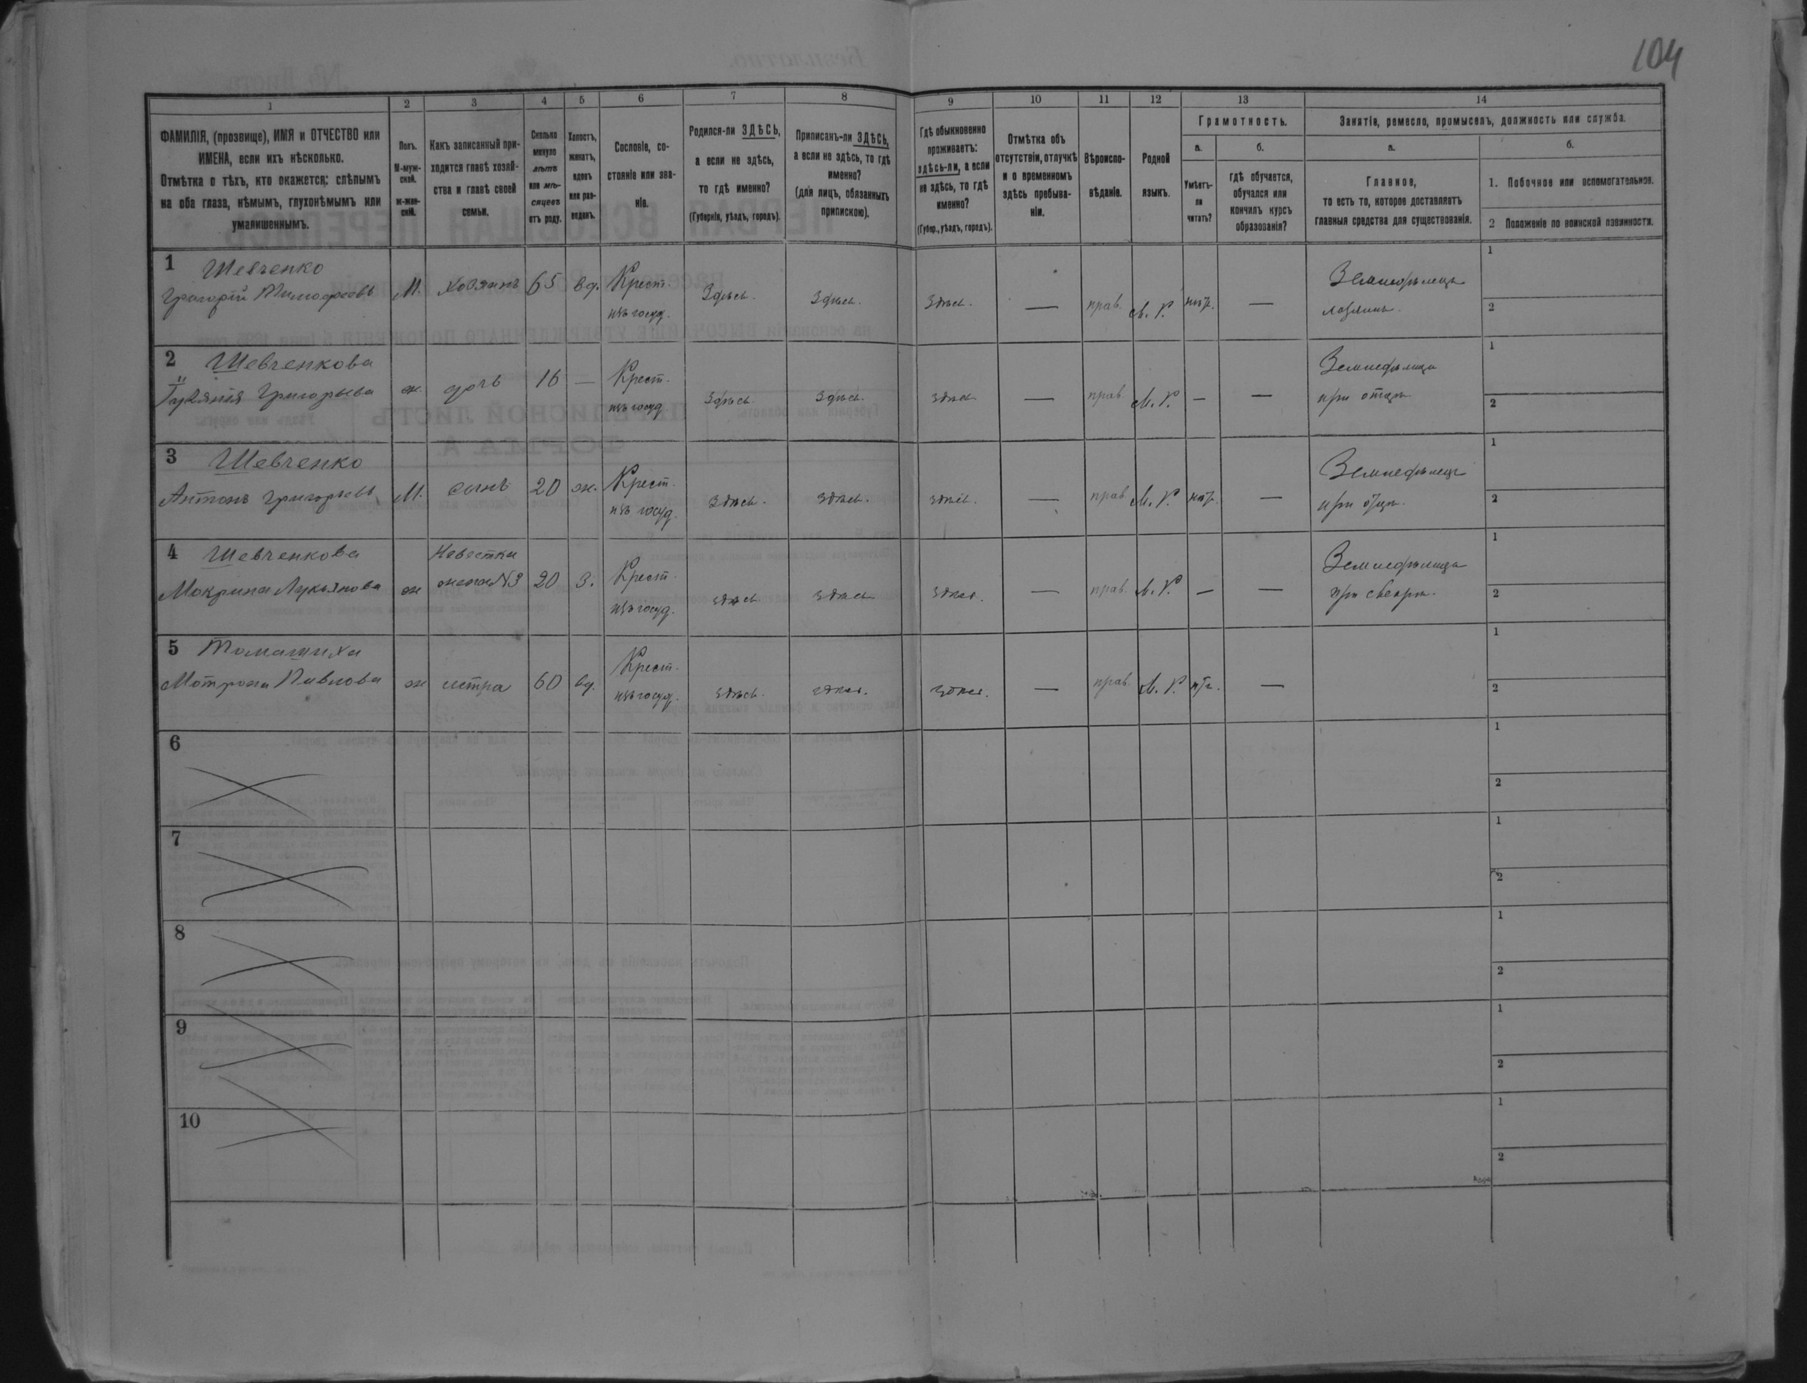 104
1 2 3 4 5 6 7 8 9 10 11 12 13 14
ФАМИЛІЯ, (прозвище), ИМЯ и ОТЧЕСТВО или
ИМЕНА, если ихъ нѣсколько.
Отмѣтка о тѣхъ, кто окажется: слѣпымъ
на оба глаза, нѣмымъ, глухонѣмымъ или
умалишеннымъ.
Полъ.
М-муж-
ской.
ж-жен-
скій.
Какъ записанный при-
ходится главѣ хозяй-
ства и главѣ своей
семьи.
Сколько
минуло
лѣтъ
или мѣ-
сяцевъ
отъ роду.
Холостъ,
женатъ,
вдовъ
или раз-
веденъ.
Сословіе, со-
стояніе или зва-
ніе.
Родился-ли ЗДѢСЬ,
а если не здѣсь,
то гдѣ именно?
(Губернія, уѣздъ, городъ).
Приписанъ-ли ЗДѢСЬ,
а если не здѣсь, то гдѣ
именно?
(для лицъ, обязанныхъ
припискою).
Гдѣ обыкновенно
проживаетъ:
здѣсь-ли, а если
не здѣсь, то гдѣ
именно?
(Губер., уѣздъ, городъ).
Отмѣтка объ
отсутствіи, отлучкѣ
и о временномъ
здѣсь пребыва-
ніи.
Вѣроиспо-
вѣданіе.
Родной
языкъ.
Грамотность.
а.
Умѣетъ-
ли
читать?
б.
гдѣ обучается,
обучался или
кончилъ курсъ
образованія?
Занятіе, ремесло, промыселъ, должность или служба.
а.
Главное,
то есть то, которое доставляетъ
главныя средства для существованія.
б.
1. Побочное или вспомогательное.
2 Положеніе по воинской повинности.
1 Шевченко
Григорій Тимофѣевъ М. хозяинъ 65 вд. Крест.
изъ госуд. Здѣсь. Здѣсь. здѣсь. — прав. М. Р. нѣт. — Земледѣлецъ
хозяинъ. 1
2
2 Шевченкова
Григорьева ж. дочь 16 — Крест.
изъ госуд Здѣсь. Здѣсь. здѣсь — прав. М. Р. — — Земледѣлица
при отцѣ 1
2
3 Шевченко
Антонъ Григорьевъ М. сынъ 20 ж. Крест.
изъ госуд. здѣсь. здѣсь. здѣсь. — прав М. Р. нѣт. — Земледѣлецъ
при отцѣ. 1
2
4 Шевченкова
Мокрина Лукьянова ж Невестка
жена №3 20 з. Крест.
изъ госуд. здѣсь здѣсь здѣсь. — прав. М. Р. — — Земледѣлица
при свекрѣ. 1
2
5 Томашиха
Мотрона Павлова ж сестра 60 вд. Крест.
изъ госуд. здѣсь. здѣсь. здѣсь. — прав. М. Р. нѣт. — 1
2
6 1
2
7 1
2
8 1
2
9 1
2
10 1
2